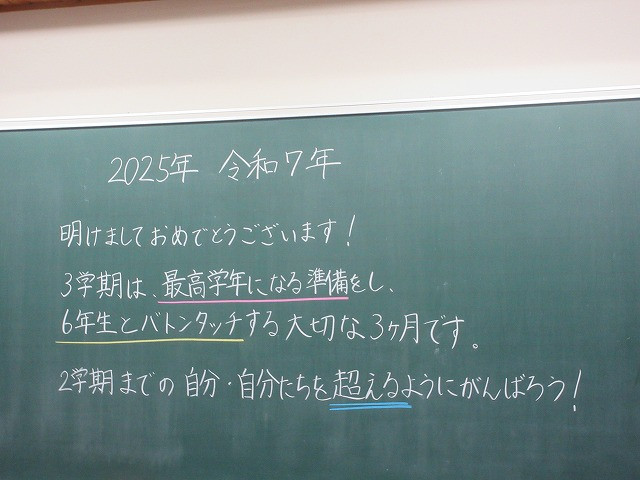 2025年 令和7年
明けましておめでとうございます!
3学期は、最高学年になる準備をし、
6年生とバトンタッチする大切な3ヶ月です。
2学期までの自分・自分たちを超えるようにがんばろう!